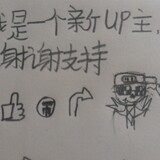 我是一个新UP主,
谢谢支持